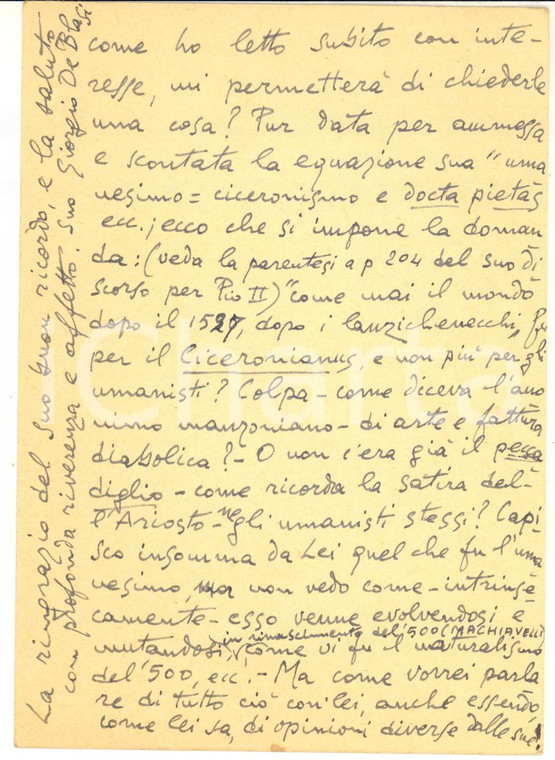 come ho letto subito con inte-
resse, mi permetterà di chiederle
una cosa? Pur data per ammessa
e scontata la equazione sua "uma
nesimo = ciceronismo e docta pietas
ecc.; ecco che si impone la doman
da: (veda la parentesi a p 204 del suo di
scorso per Pio II) "come mai il mondo
dopo il 1527, dopo i lanzichenecchi, fu
per il Ciceronianus, e non più per gli
umanisti? Colpa - come diceva l'ano
nimo manzoniano - di arte e fattura
diabolica? - O non c'era già il pecca
diglio - come ricorda la satira del-
l'Ariosto - negli umanisti stessi? Capi
sco insomma da Lei quel che fu l'uma
nesimo, ma non vedo come - intrinse
camente - esso venne evolvendosi e
in rinascimento del '500 (MACHIAVELLI)
mutandosi, come vi fu il naturalismo
del '500, ecc. - Ma come vorrei parla
re di tutto ciò con lei, anche essendo,
come lei sa, di opinioni diverse dalle sue!
La ringrazio del Suo buon ricordo, e la saluto
con profonda riverenza e affetto. Suo Giorgio De Blasi